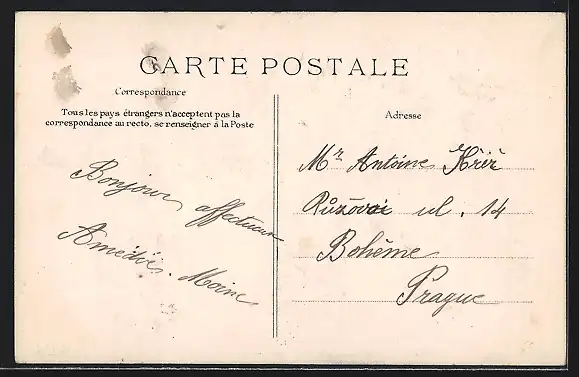 CARTE POSTALE
Correspondance
Tous les pays étrangers n'acceptent pas la
correspondance au recto, se renseigner à la Poste
Bonjour affectueux
Amédée Moine
Adresse
Mr Antoine Kříž
Růžová ul. 14
Bohême
Prague